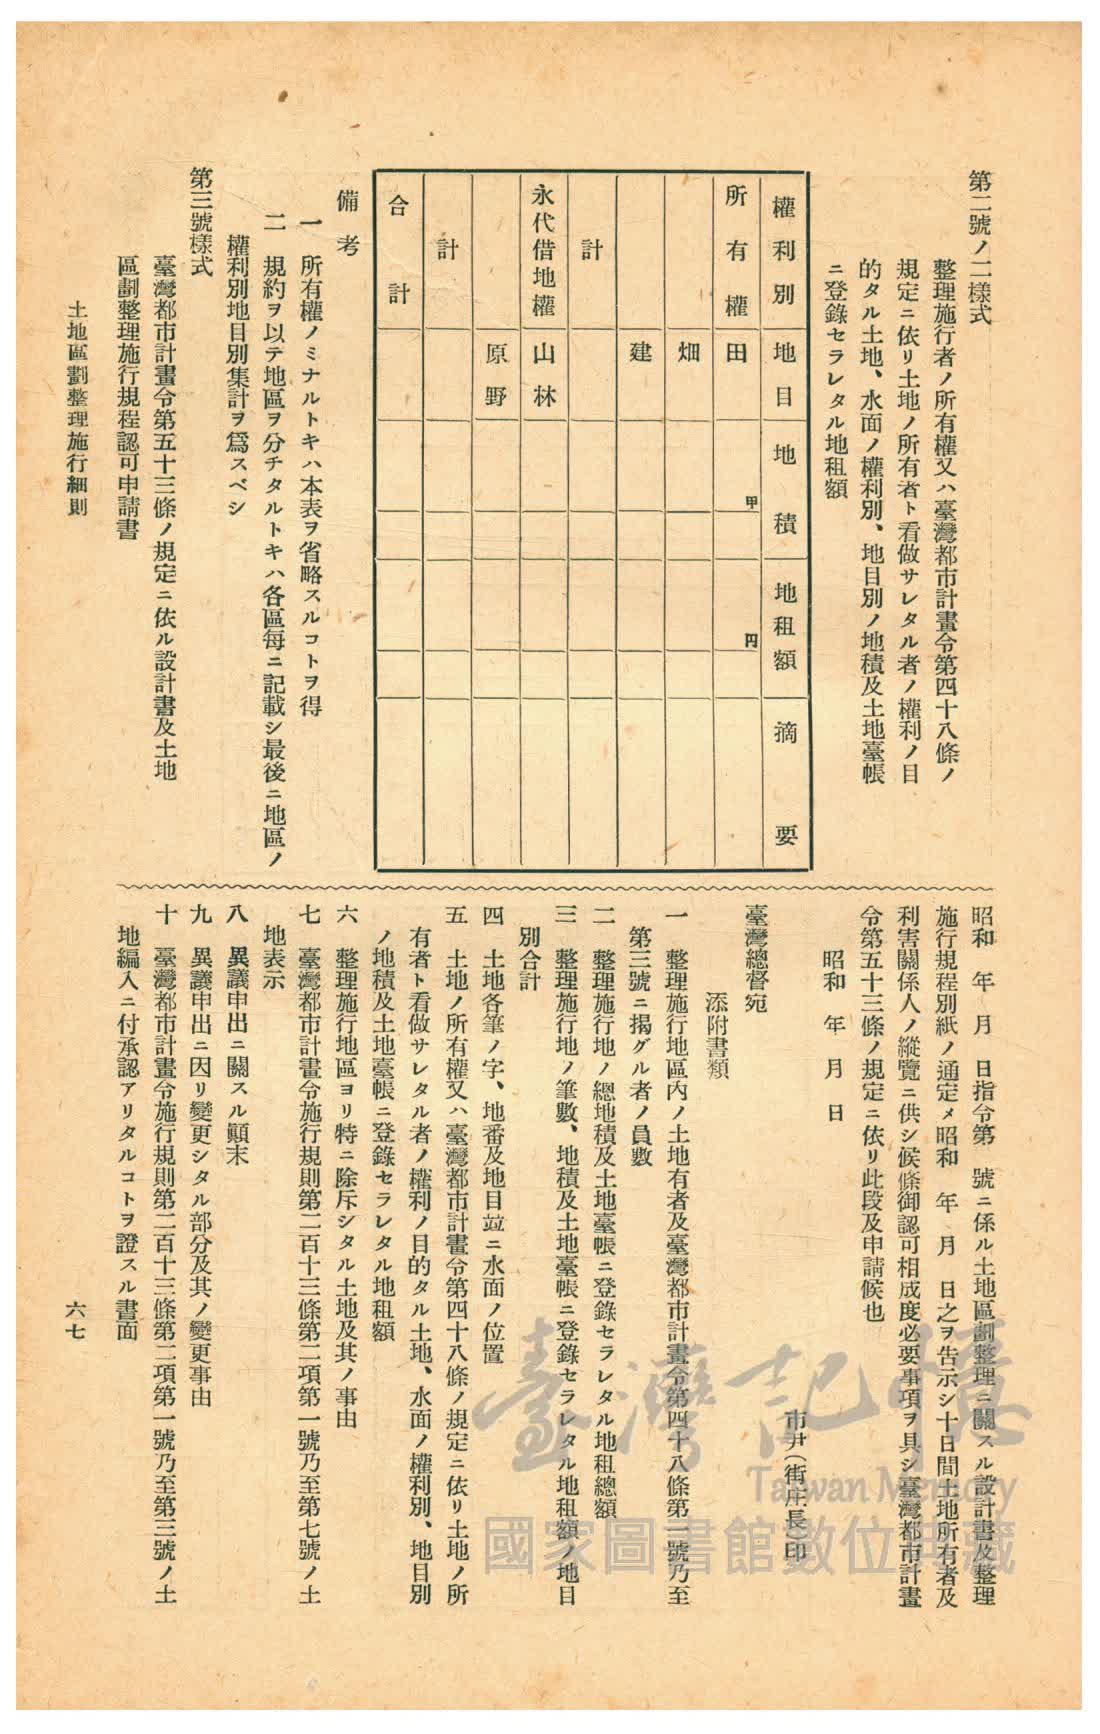 第二號ノ二樣式
整理施行者ノ所有權又ハ臺灣都市計畫令第四十八條ノ
規定ニ依リ土地ノ所有者ト看做サレタル者ノ權利ノ目
的タル土地、水面ノ權利別、地目別ノ地積及土地臺帳
ニ登錄セラレタル地租額
權利別 地目 地積 地租額 摘要
所有權 田 甲 円
畑
建
計
永代借地權 山林
原野
計
合計
備考
一 所有權ノミナルトキハ本表ヲ省略スルコトヲ得
二 規約ヲ以テ地區ヲ分チタルトキハ各區每ニ記載シ最後ニ地區ノ
權利別地目別集計ヲ爲スベシ
第三號樣式
臺灣都市計畫令第五十三條ノ規定ニ依ル設計書及土地
區劃整理施行規程認可申請書
昭和 年 月 日指令第 號ニ係ル土地區劃整理ニ關スル設計書及整理
施行規程別紙ノ通定メ昭和 年 月 日之ヲ告示シ十日間土地所有者及
利害關係人ノ縱覽ニ供シ候條御認可相成度必要事項ヲ具シ臺灣都市計畫
令第五十三條ノ規定ニ依リ此段及申請候也
昭和 年 月 日
市尹(街庄長)印
臺灣總督宛
添附書類
一 整理施行地區內ノ土地有者及臺灣都市計畫令第四十八條第一號乃至
第三號ニ揭グル者ノ員數
二 整理施行地ノ總地積及土地臺帳ニ登錄セラレタル地租總額
三 整理施行地ノ筆數、地積及土地臺帳ニ登錄セラレタル地租額ノ地目
別合計
四 土地各筆ノ字、地番及地目竝ニ水面ノ位置
五 土地ノ所有權又ハ臺灣都市計畫令第四十八條ノ規定ニ依リ土地ノ所
有者ト看做サレタル者ノ權利ノ目的タル土地、水面ノ權利別、地目別
ノ地積及土地臺帳ニ登錄セラレタル地租額
六 整理施行地區ヨリ特ニ除斥シタル土地及其ノ事由
七 臺灣都市計畫令施行規則第二百十三條第二項第一號乃至第七號ノ土
地表示
八 異議申出ニ關スル顚末
九 異議申出ニ因リ變更シタル部分及其ノ變更事由
十 臺灣都市計畫令施行規則第二百十三條第二項第一號乃至第三號ノ土
地編入ニ付承認アリタルコトヲ證スル書面
土地區劃整理施行細則
六七
臺灣記憶
Taiwan Memory
國家圖書館數位典藏